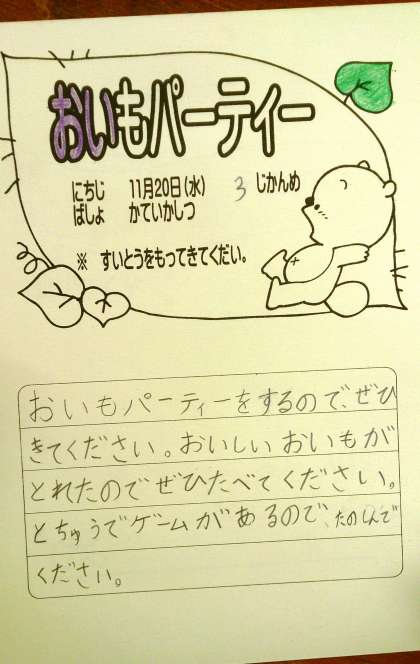 おいもパーティー
にちじ 11月20日(水) 3 じかんめ
ばしょ かていかしつ
※ すいとうをもってきてくだい。
おいもパーティーをするので、ぜひ
きてください。おいしいおいもが
とれたのでぜひたべてください。
とちゅうでゲームがあるので、たのしんで
ください。